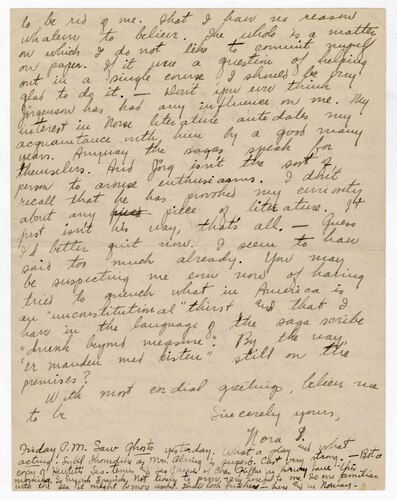 to be rid of me. That I have no reason
whatever to believe. The whole is a matter
on which I do not like to commit myself
on paper. If it were a question of helping
out in a single course I should be very
glad to do it. — Don't you ever think
Jorgenson has had any influence on me. My
interest in Norse literature antedates my
acquaintance with him by a good many
years. Anyway the sagas speak for
themselves. And Jorg isn't the sort of
person to arouse enthusiasms. I don't
recall that he has provoked my curiosity
about any piece of literature. It
just isn't his way, that's all. — Guess
I'd better quit now. I seem to have
said too much already. You may
be suspecting me even now of having
tried to quench what in America is
an "unconstitutional" thirst and that I
have in the language of the saga scribe
"drunk beyond measure". By the way,
"er manden med kisten" still on the
premises?
With most cordial greetings, believe me
to be
Sincerely yours,
Nora
Friday P.M. Saw Ghosts yesterday. What a play and what
acting! Mrs. Alving is superb. Cast very strong. — Got a
copy of this
morning. In English Spanish. Not likely to prove very useful to me. So one familiar
with the sea it might be very useful.